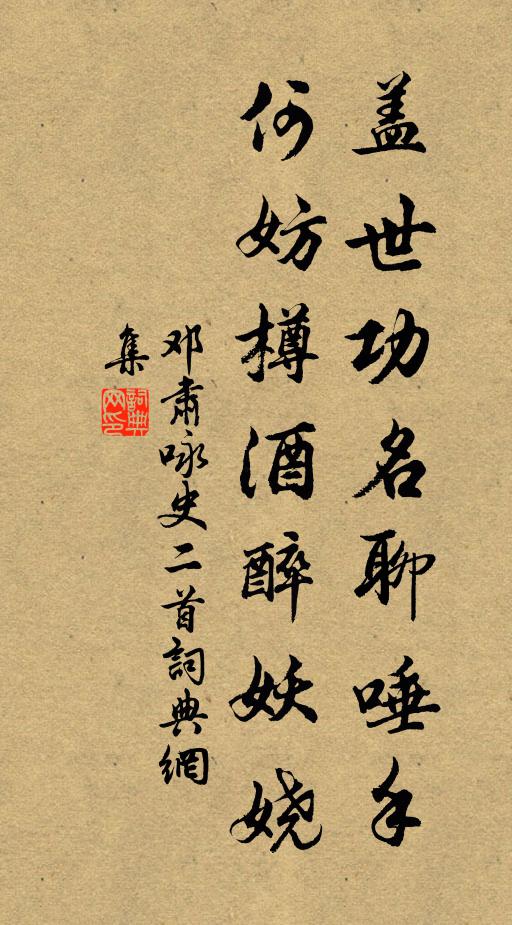 盖世功名聊唾手
何妨樽酒醉妖娆
邓肃咏史二首詞典網
集
詞典
网印